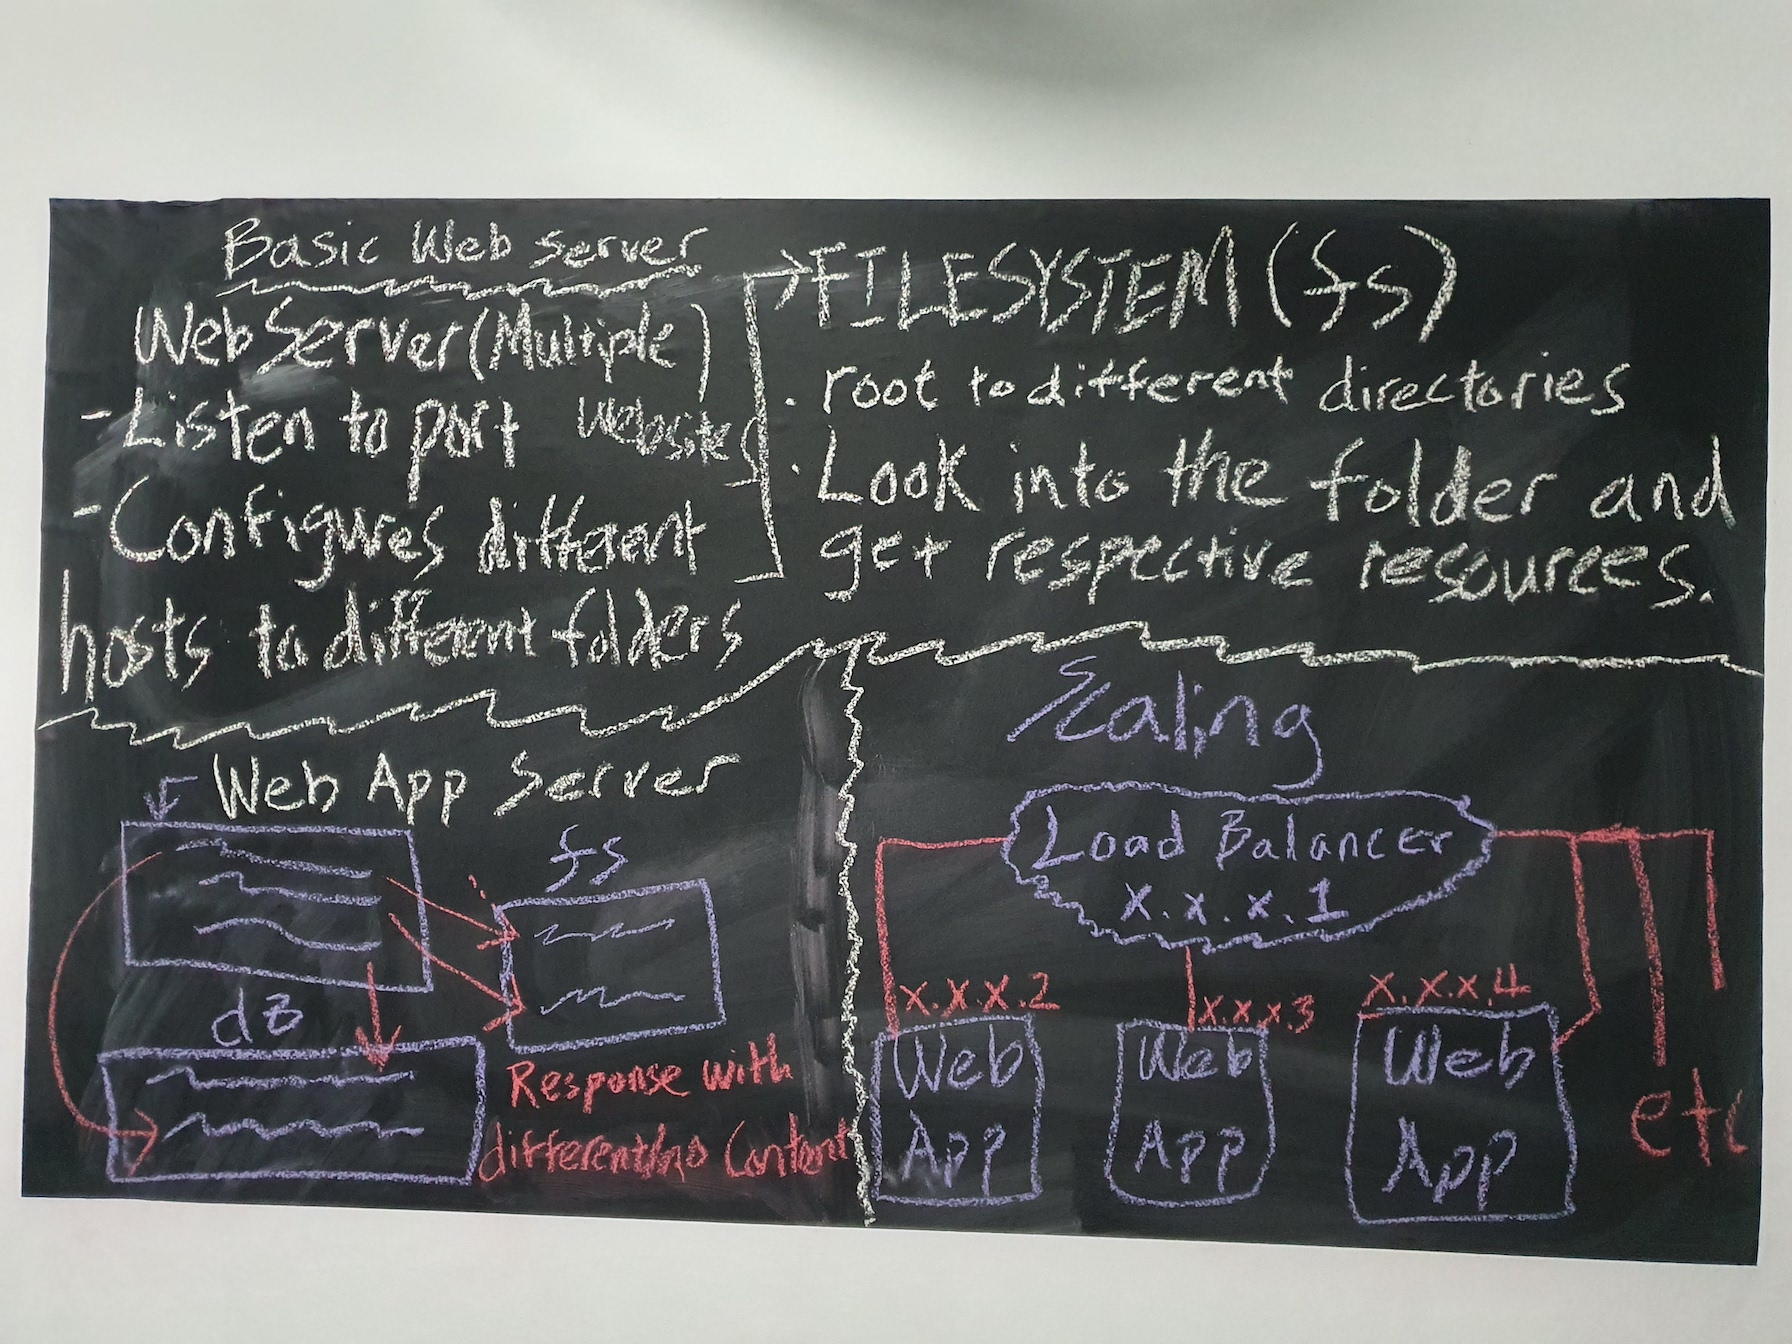 Basic Web Server
Web Server (Multiple)
Websites
- Listen to port
- Configures different
hosts to different folders
FILESYSTEM (fs)
· root to different directories
· Look into the folder and
get respective resources.
Web App Server
fs
db
Response with
different/no Content
Scaling
Load Balancer
X.X.X.1
X.X.X.2
X.X.X.3
X.X.X.4
Web
App
Web
App
Web
App
etc